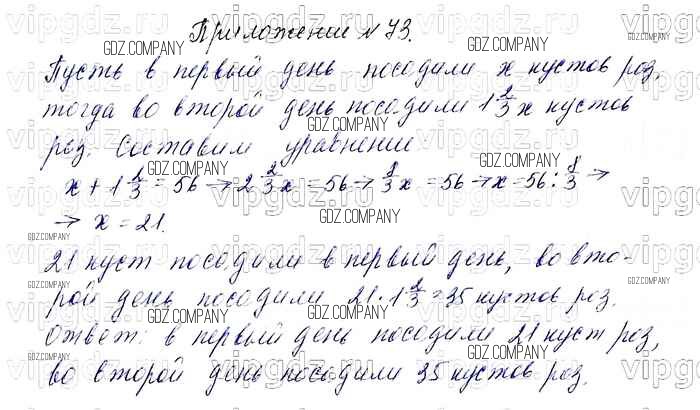 Приложение № 73.
Пусть в первый день посадили x кустов роз,
тогда во второй день посадили 1 2/3 x кустов
роз. Составим уравнение
x + 1 2/3 = 56 → 2 2/3 x = 56 → 8/3 x = 56 → x = 56 : 8/3 →
→ x = 21.
21 куст посадили в первый день, во вто-
рой день посадили 21 · 1 2/3 = 35 кустов роз.
Ответ: в первый день посадили 21 куст роз,
во второй день посадили 35 кустов роз.
GDZ.COMPANY
vipgdz.com